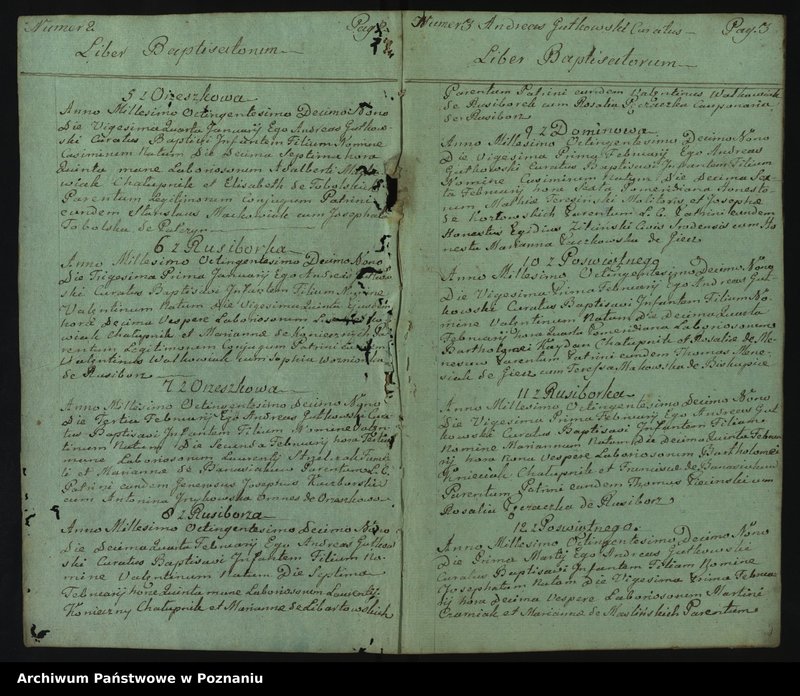 Numer 2 Pag. 2
Liber Baptisatorum
5 z Orzeszkowa
Anno Millesimo Octingentesimo Decimo Nono
Die Vigesima Quarta Januarij Ego Andreas Gutkow-
ski Curatus Baptisavi Infantem Filium Nomine
Casimirum Natum Die Decima Septima hora
Quinta mane Laboriosorum Adalberti
Chałupnik et Elisabeth de Tobolskich
Parentum Legitimorum Conjugum Patrini
eundem Stanislaus Maćkowiak cum Josepha
Tobolska de
6 z Rusiborka
Anno Millesimo Octingentesimo Decimo Nono
Die Trigesima Prima Januarij Ego Andreas Gutkow-
ski Curatus Baptisavi Infantem Filium Nomine
Valentinum Natum Die Vigesima Quinta Ejusdem
hora Decima Vespere Laboriosorum
wiak Chałupnik et Marianna de Koniecznich Pa-
rentum Legitimorum Conjugum Patrini Eundem
Valentinus Walkowiak cum Sophia Wozniaka
de Rusiborz
7 z Orzeszkowa
Anno Millesimo Octingentesimo Decimo Nono
Die Tertia Februarij Ego Andreas Gutkowski Cura-
tus Baptisavi Infantem Filium Nomine Valen-
tinum Natum Die Secunda Februarij hora
mane Laboriosorum Laurentij
et Marianna de Banasiakow Parentum L. C.
Patrini eundem Generosus Josephus Kucborski
cum Antonina Omnes de Orzeszkowa
8 z Rusiborza
Anno Millesimo Octingentesimo Decimo Nono
Die Decima Quarta Februarij Ego Andreas Gutkow-
ski Curatus Baptisavi Infantem Filium No-
mine Valentinum Natum Die Septima
Februarij hora Quinta mane Laboriosorum Laurentij
Konieczny Chałupnik et Marianna de Libartowskich
Numer 3 Andreas Gutkowski Curatus Pag. 3
Liber Baptisatorum
Parentum Patrini eundem Valentinus Walkowiak
de Rusiborek cum Rosalia Cauponaria
de Rusiborz
9 z Dominowa
Anno Millesimo Octingentesimo Decimo Nono
Die Vigesima Prima Februarij Ego Andreas
Gutkowski Curatus Baptisavi Infantem Filium
Nomine Casimirum Natum Die Decima Sex-
ta Februarij hora Sexta Pomeridiana Honesto-
rum Mathia Teresinski Molitoris et Josepha
de Kozłowskich Parentum L. C. Patrini eundem
Honestus Egidius Zitinski Civis Sredensis cum Ho-
nesta Marianna Raczkowska de Giecz
10 z Poswiętnego
Anno Millesimo Octingentesimo Decimo Nono
Die Vigesima Prima Februarij Ego Andreas Gut-
kowski Curatus Baptisavi Infantem Filium No-
mine Valentinum Natum Die Decima Quarta
Februarij hora Quarta Pomeridiana Laboriosorum
Bartholomei Kaydan Chałupnik et Rosalia de Me-
nesow Parentum Patrini eundem Thomas Mene-
siak de Giecz cum Teressa Makowska de Biskupice
11 z Rusiborka
Anno Millesimo Octingentesimo Decimo Nono
Die Vigesima Prima Februarij Ego Andreas Gut-
kowski Curatus Baptisavi Infantem Filiam
Nomine Mariannam Natam Die Decima Quinta Februa-
rij hora Nona Vespere Laboriosorum Bartholomei
Kmieciak Chałupnik et Francisca de Banasiakow
Parentum Patrini eundem Thomas cum
Rosalia de Rusiborz
12 z Poswiętnego
Anno Millesimo Octingentesimo Decimo Nono
Die Prima Martij Ego Andreas Gutkowski
Curatus Baptisavi Infantem Filiam Nomine
Josepham Natam Die Vigesima Prima Februa-
rij hora Decima Vespere Laboriosorum Martini
Czarniak et Marianna de Maślińskich Parentum
Archiwum Państwowe w Poznaniu